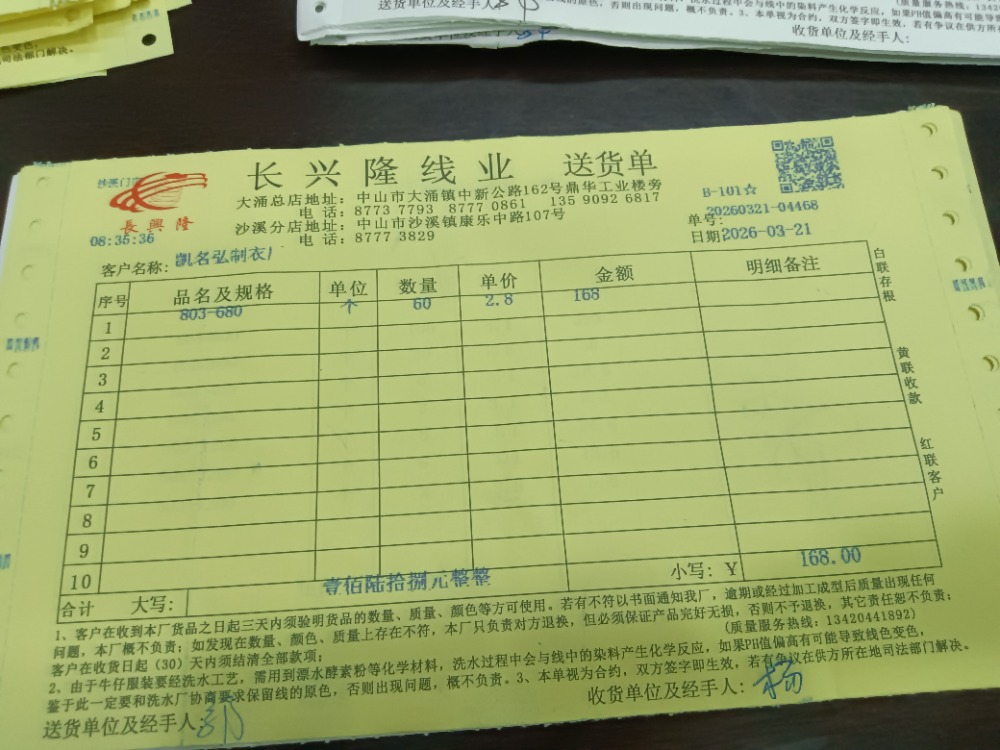 送货单位及经手人
的原色，否则出现问题，概不负责。3、本单视为合约，双方签字即生效，若有争议在供方所
收货单位及经手人：
司法部门解决。
沙溪门
長興隆
08:35:36
长兴隆线业 送货单
大涌总店地址：中山市大涌镇中新公路162号鼎华工业楼旁
电话：8773 7793 8777 0861 135 9092 6817
沙溪分店地址：中山市沙溪镇康乐中路107号
电话：8777 3829
B-101☆
单号：20260321-04468
日期2026-03-21
客户名称：凯名弘制衣厂
序号 品名及规格 单位 数量 单价 金额 明细备注
1 803-680 个 60 2.8 168
2
3
4
5
6
7
8
9
10
合计 大写：壹佰陆拾捌元整整 小写：¥ 168.00
白联存根
黄联收款
红联客户
1、客户在收到本厂货品之日起三天内须验明货品的数量、质量、颜色等方可使用。若有不符以书面通知我厂，逾期或经过加工成型后质量出现任何
问题，本厂概不负责；如发现在数量、颜色、质量上存在不符，本厂只负责对方退换，但必须保证产品完好无损，否则不予退换，其它责任恕不负责；
客户在收货日起（30）天内须结清全部款项； (质量服务热线：13420441892)
2、由于牛仔服装要经洗水工艺，需用到漂水酵素粉等化学材料，洗水过程中会与线中的染料产生化学反应，如果PH值偏高有可能导致线色变色，
鉴于此一定要和洗水厂协商要求保留线的原色，否则出现问题，概不负责。3、本单视为合约，双方签字即生效，若有争议在供方所在地司法部门解决。
送货单位及经手人：
收货单位及经手人：杨